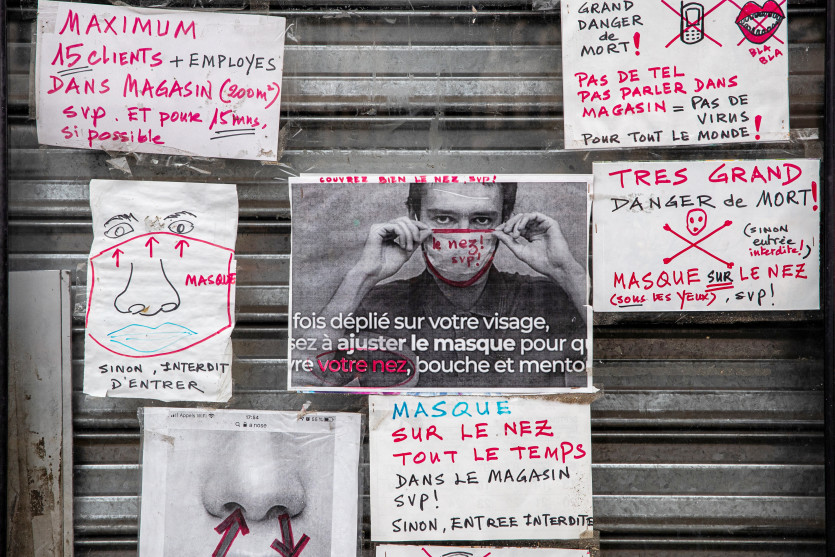 MAXIMUM
15 CLIENTS + EMPLOYES
DANS MAGASIN (200m²)
svp. ET POUR 15 mns,
si possible
GRAND
DANGER
de
MORT!
BLA
BLA
PAS DE TEL
PAS PARLER DANS
MAGASIN = PAS DE
VIRUS
POUR TOUT LE MONDE!
MASQUE
SINON, INTERDIT
D'ENTRER
COUVREZ BIEN LE NEZ, SVP!
le nez!
svp!
fois déplié sur votre visage,
sez à ajuster le masque pour qu
vre votre nez, bouche et menton
TRES GRAND
DANGER de MORT!
(SINON
entrée
interdite!)
MASQUE SUR LE NEZ
(SOUS LES YEUX), SVP!
Appels WiFi
17:54
58 %
a nose
MASQUE
SUR LE NEZ
TOUT LE TEMPS
DANS LE MAGASIN
SVP!
SINON, ENTREE INTERDITE